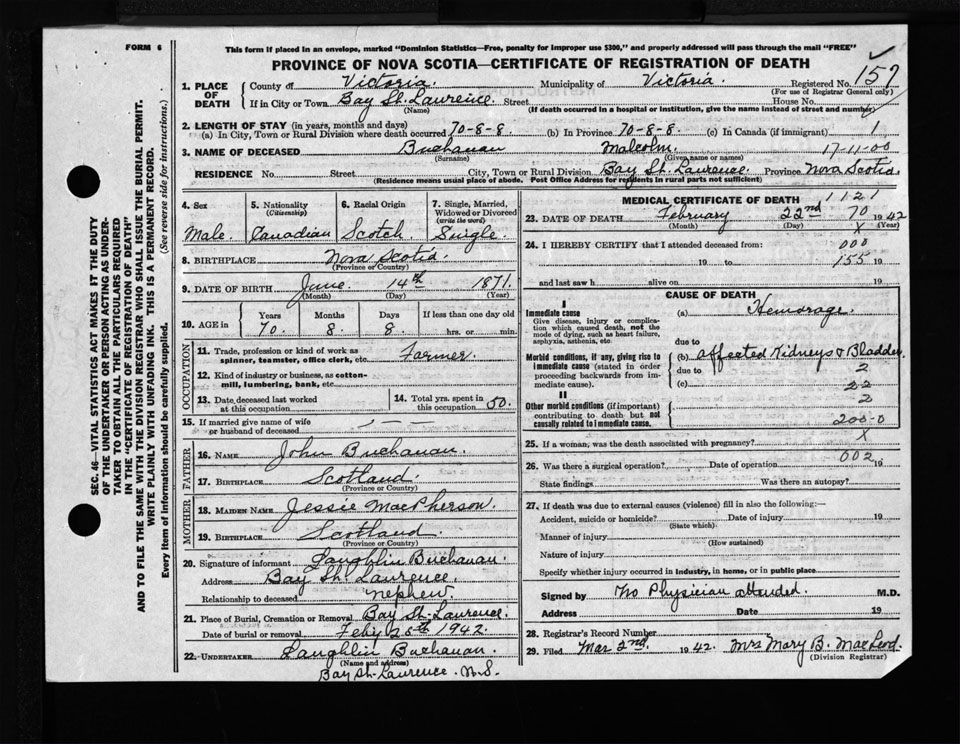 FORM 6
This form if placed in an envelope, marked "Dominion Statistics—Free, penalty for improper use $300," and properly addressed will pass through the mail "FREE"
PROVINCE OF NOVA SCOTIA—CERTIFICATE OF REGISTRATION OF DEATH
SEC. 46—VITAL STATISTICS ACT MAKES IT THE DUTY
OF THE UNDERTAKER OR PERSON ACTING AS UNDER-
TAKER TO OBTAIN ALL THE PARTICULARS REQUIRED
IN THE "CERTIFICATE OF REGISTRATION OF DEATH"
AND TO FILE THE SAME WITH THE DIVISION REGISTRAR WHO SHALL ISSUE THE BURIAL PERMIT.
WRITE PLAINLY WITH UNFADING INK. THIS IS A PERMANENT RECORD.
Every item of information should be carefully supplied. (See reverse side for instructions.)
1. PLACE OF DEATH County of Victoria. Municipality of Victoria. Registered No. 157
(For use of Registrar General only)
If in City or Town Bay St. Lawrence. Street House No.
(Name) (If death occurred in a hospital or institution, give the name instead of street and number)
2. LENGTH OF STAY (in years, months and days)
(a) In City, Town or Rural Division where death occurred 70-8-8. (b) In Province 70-8-8. (c) In Canada (if immigrant) 1
3. NAME OF DECEASED Buchanan Malcolm. 17-11-00
(Surname) (Given name or names)
RESIDENCE No. Street City, Town or Rural Division Bay St. Lawrence. Province Nova Scotia
(Residence means usual place of abode. Post Office Address for residents in rural parts not sufficient)
4. Sex 5. Nationality (Citizenship) 6. Racial Origin 7. Single, Married, Widowed or Divorced (write the word)
Male. Canadian Scotch. Single.
8. BIRTHPLACE Nova Scotia.
(Province or Country)
9. DATE OF BIRTH June. 14th 1871.
(Month) (Day) (Year)
10. AGE in Years Months Days If less than one day old
70. 8. 8. hrs. or min.
OCCUPATION
11. Trade, profession or kind of work as spinner, teamster, office clerk, etc. Farmer.
12. Kind of industry or business, as cotton-mill, lumbering, bank, etc.
13. Date deceased last worked at this occupation 14. Total yrs. spent in this occupation 50.
15. If married give name of wife or husband of deceased
FATHER
16. NAME John Buchanan.
17. BIRTHPLACE Scotland
(Province or Country)
MOTHER
18. MAIDEN NAME Jessie MacPherson.
19. BIRTHPLACE Scotland
(Province or Country)
20. Signature of informant Laughlin Buchanan.
Address Bay St. Lawrence.
Relationship to deceased nephew.
21. Place of Burial, Cremation or Removal Bay St. Lawrence.
Date of burial or removal Feby 25th 1942
22. UNDERTAKER Laughlin Buchanan.
(Name and address)
Bay St. Lawrence. N.S.
MEDICAL CERTIFICATE OF DEATH 1121
23. DATE OF DEATH February 22nd 70 1942
(Month) (Day) X (Year)
24. I HEREBY CERTIFY that I attended deceased from: 000
19 to 155 19
and last saw h alive on 19
CAUSE OF DEATH
I
Immediate cause (a) Hemorage.
Give disease, injury or complication which caused death, not the mode of dying, such as heart failure, asphyxia, asthenia, etc.
due to
Morbid conditions, if any, giving rise to immediate cause (stated in order proceeding backwards from immediate cause). (b) affected Kidneys & Bladder.
due to 2
(c) 22
II
Other morbid conditions (if important) contributing to death but not causally related to immediate cause. 2
200-0
25. If a woman, was the death associated with pregnancy? X
26. Was there a surgical operation? Date of operation 002 19
State findings Was there an autopsy?
27. If death was due to external causes (violence) fill in also the following:—
Accident, suicide or homicide? Date of injury 19
(State which)
Manner of injury
(How sustained)
Nature of injury
Specify whether injury occurred in industry, in home, or in public place
Signed by No Physician attended. M.D.
Address Date 19
28. Registrar's Record Number
29. Filed Mar 2nd. 1942. Mrs Mary B. MacLeod.
(Division Registrar)